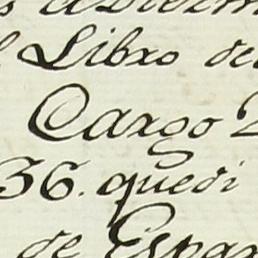 el Libro de
Cargo 2
36. quedi
de Espa